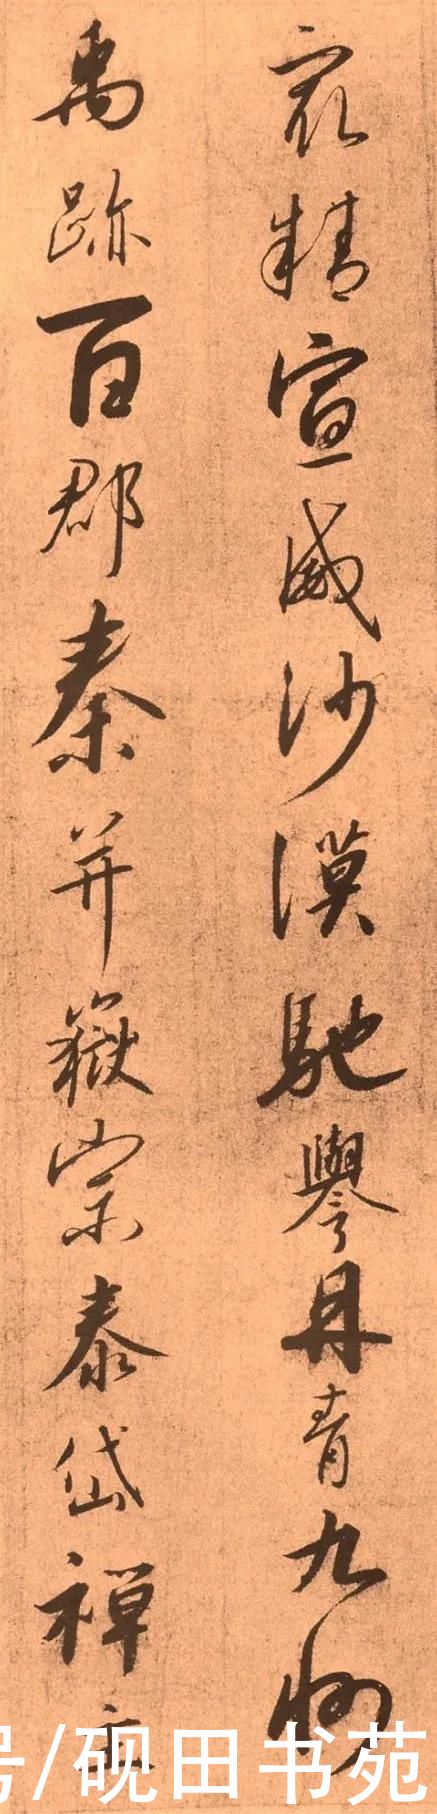 宣精宣威沙漠馳譽丹青九州
禹跡百郡秦并嶽宗泰岱禪主
号/砚田书苑